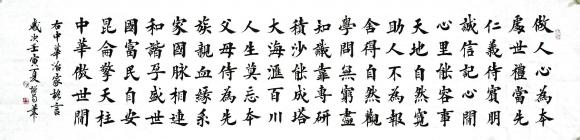 做人心為本
處世禮當先
仁義待賓朋
誠信記心間
心里能容事
天地自然寬
助人不為報
舍得自然觀
學問無窮盡
知識靠專研
積沙能成塔
大海滙百川
人生莫忘本
父母侍為先
族親血緣系
家國脈相連
和諧孚盛世
國富民自安
昆侖擎天柱
中華傲世間
右中華治家格言
歲次壬寅夏